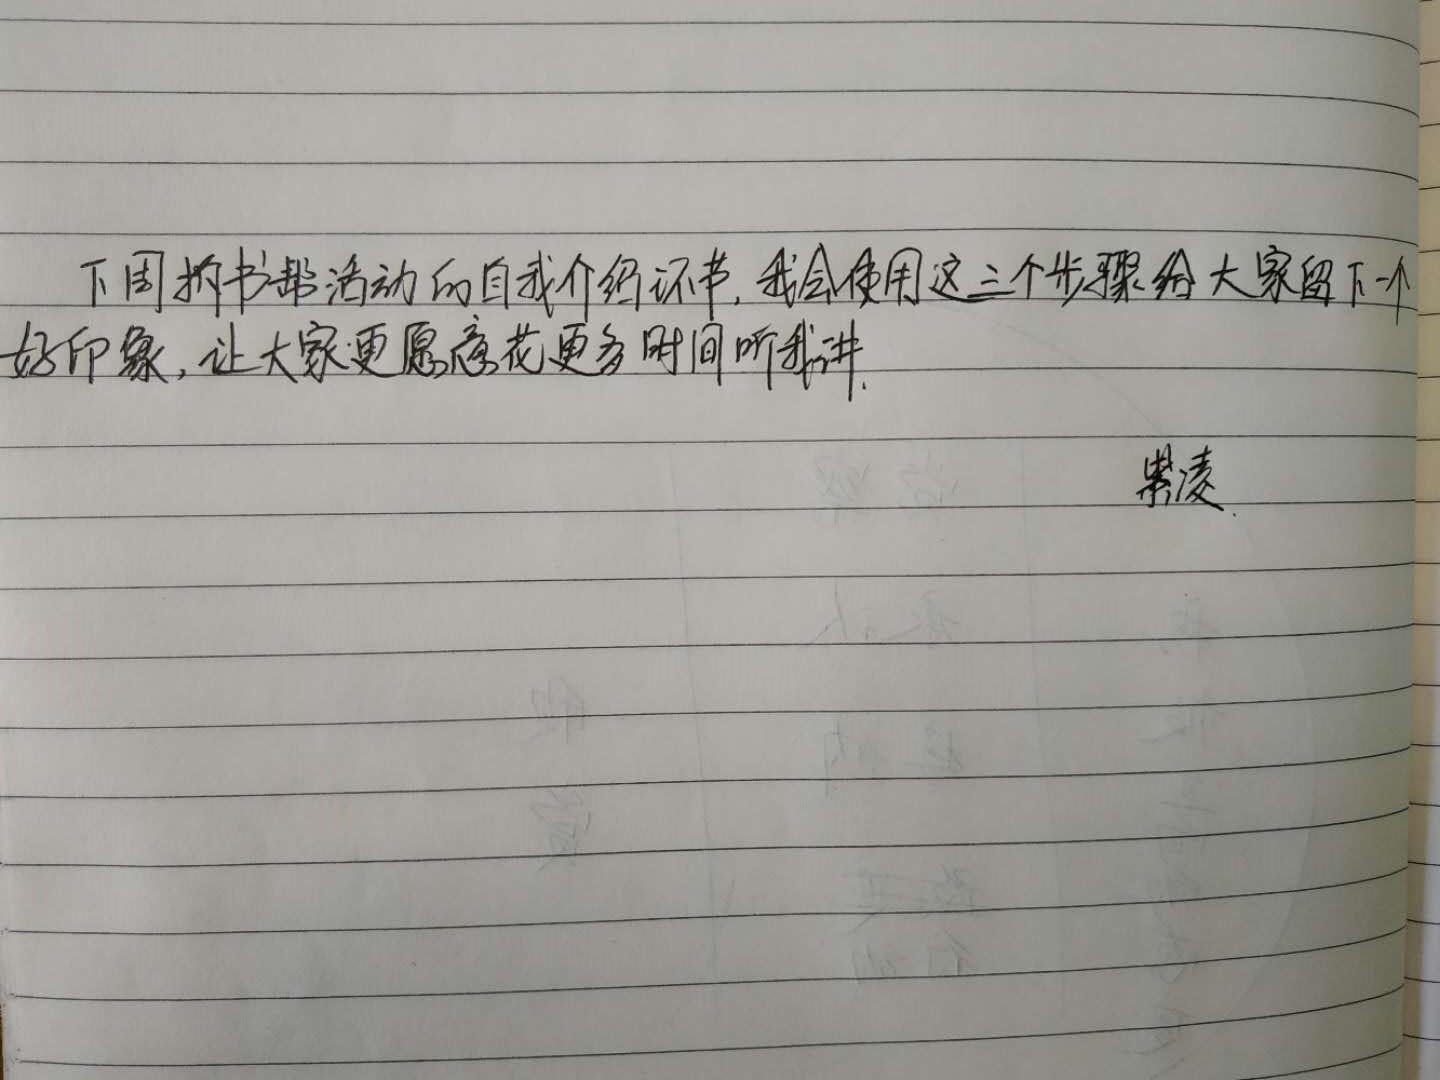 下周拆书帮活动的自我介绍环节,我会使用这三个步骤给大家留下一个
好印象,让大家更愿意花更多时间听我讲.
凌.